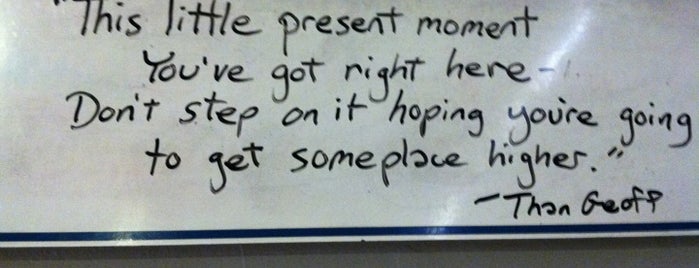 "This little present moment
You've got right here-
Don't step on it hoping you're going
to get someplace higher."
-Than Geoff